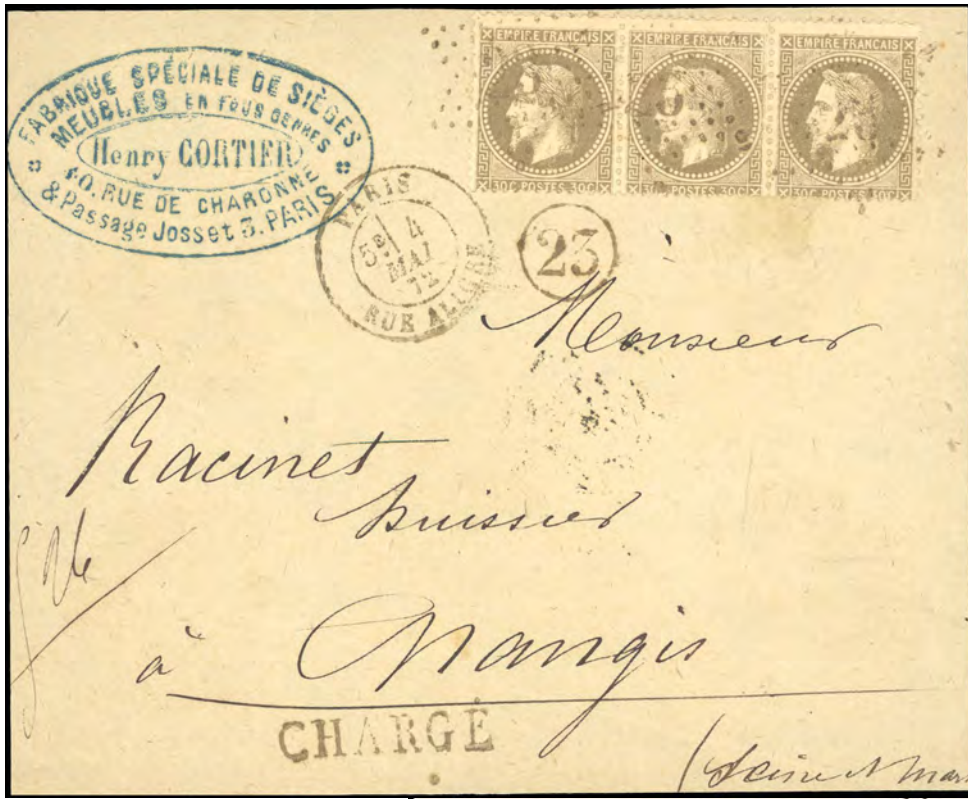 FABRIQUE SPÉCIALE DE SIÈGES
MEUBLES EN TOUS GENRES
Henry CORTIER
40. RUE DE CHARONNE
& Passage Josset 3. PARIS
EMPIRE FRANÇAIS
30C POSTES 30C
EMPIRE FRANÇAIS
30C POSTES 30C
EMPIRE FRANÇAIS
30C POSTES 30C
PARIS
5E 4
MAI
72
RUE ALIGRE
23
Monsieur
Racinet
huissier
à Nangis
CHARGÉ
(Seine et Mar